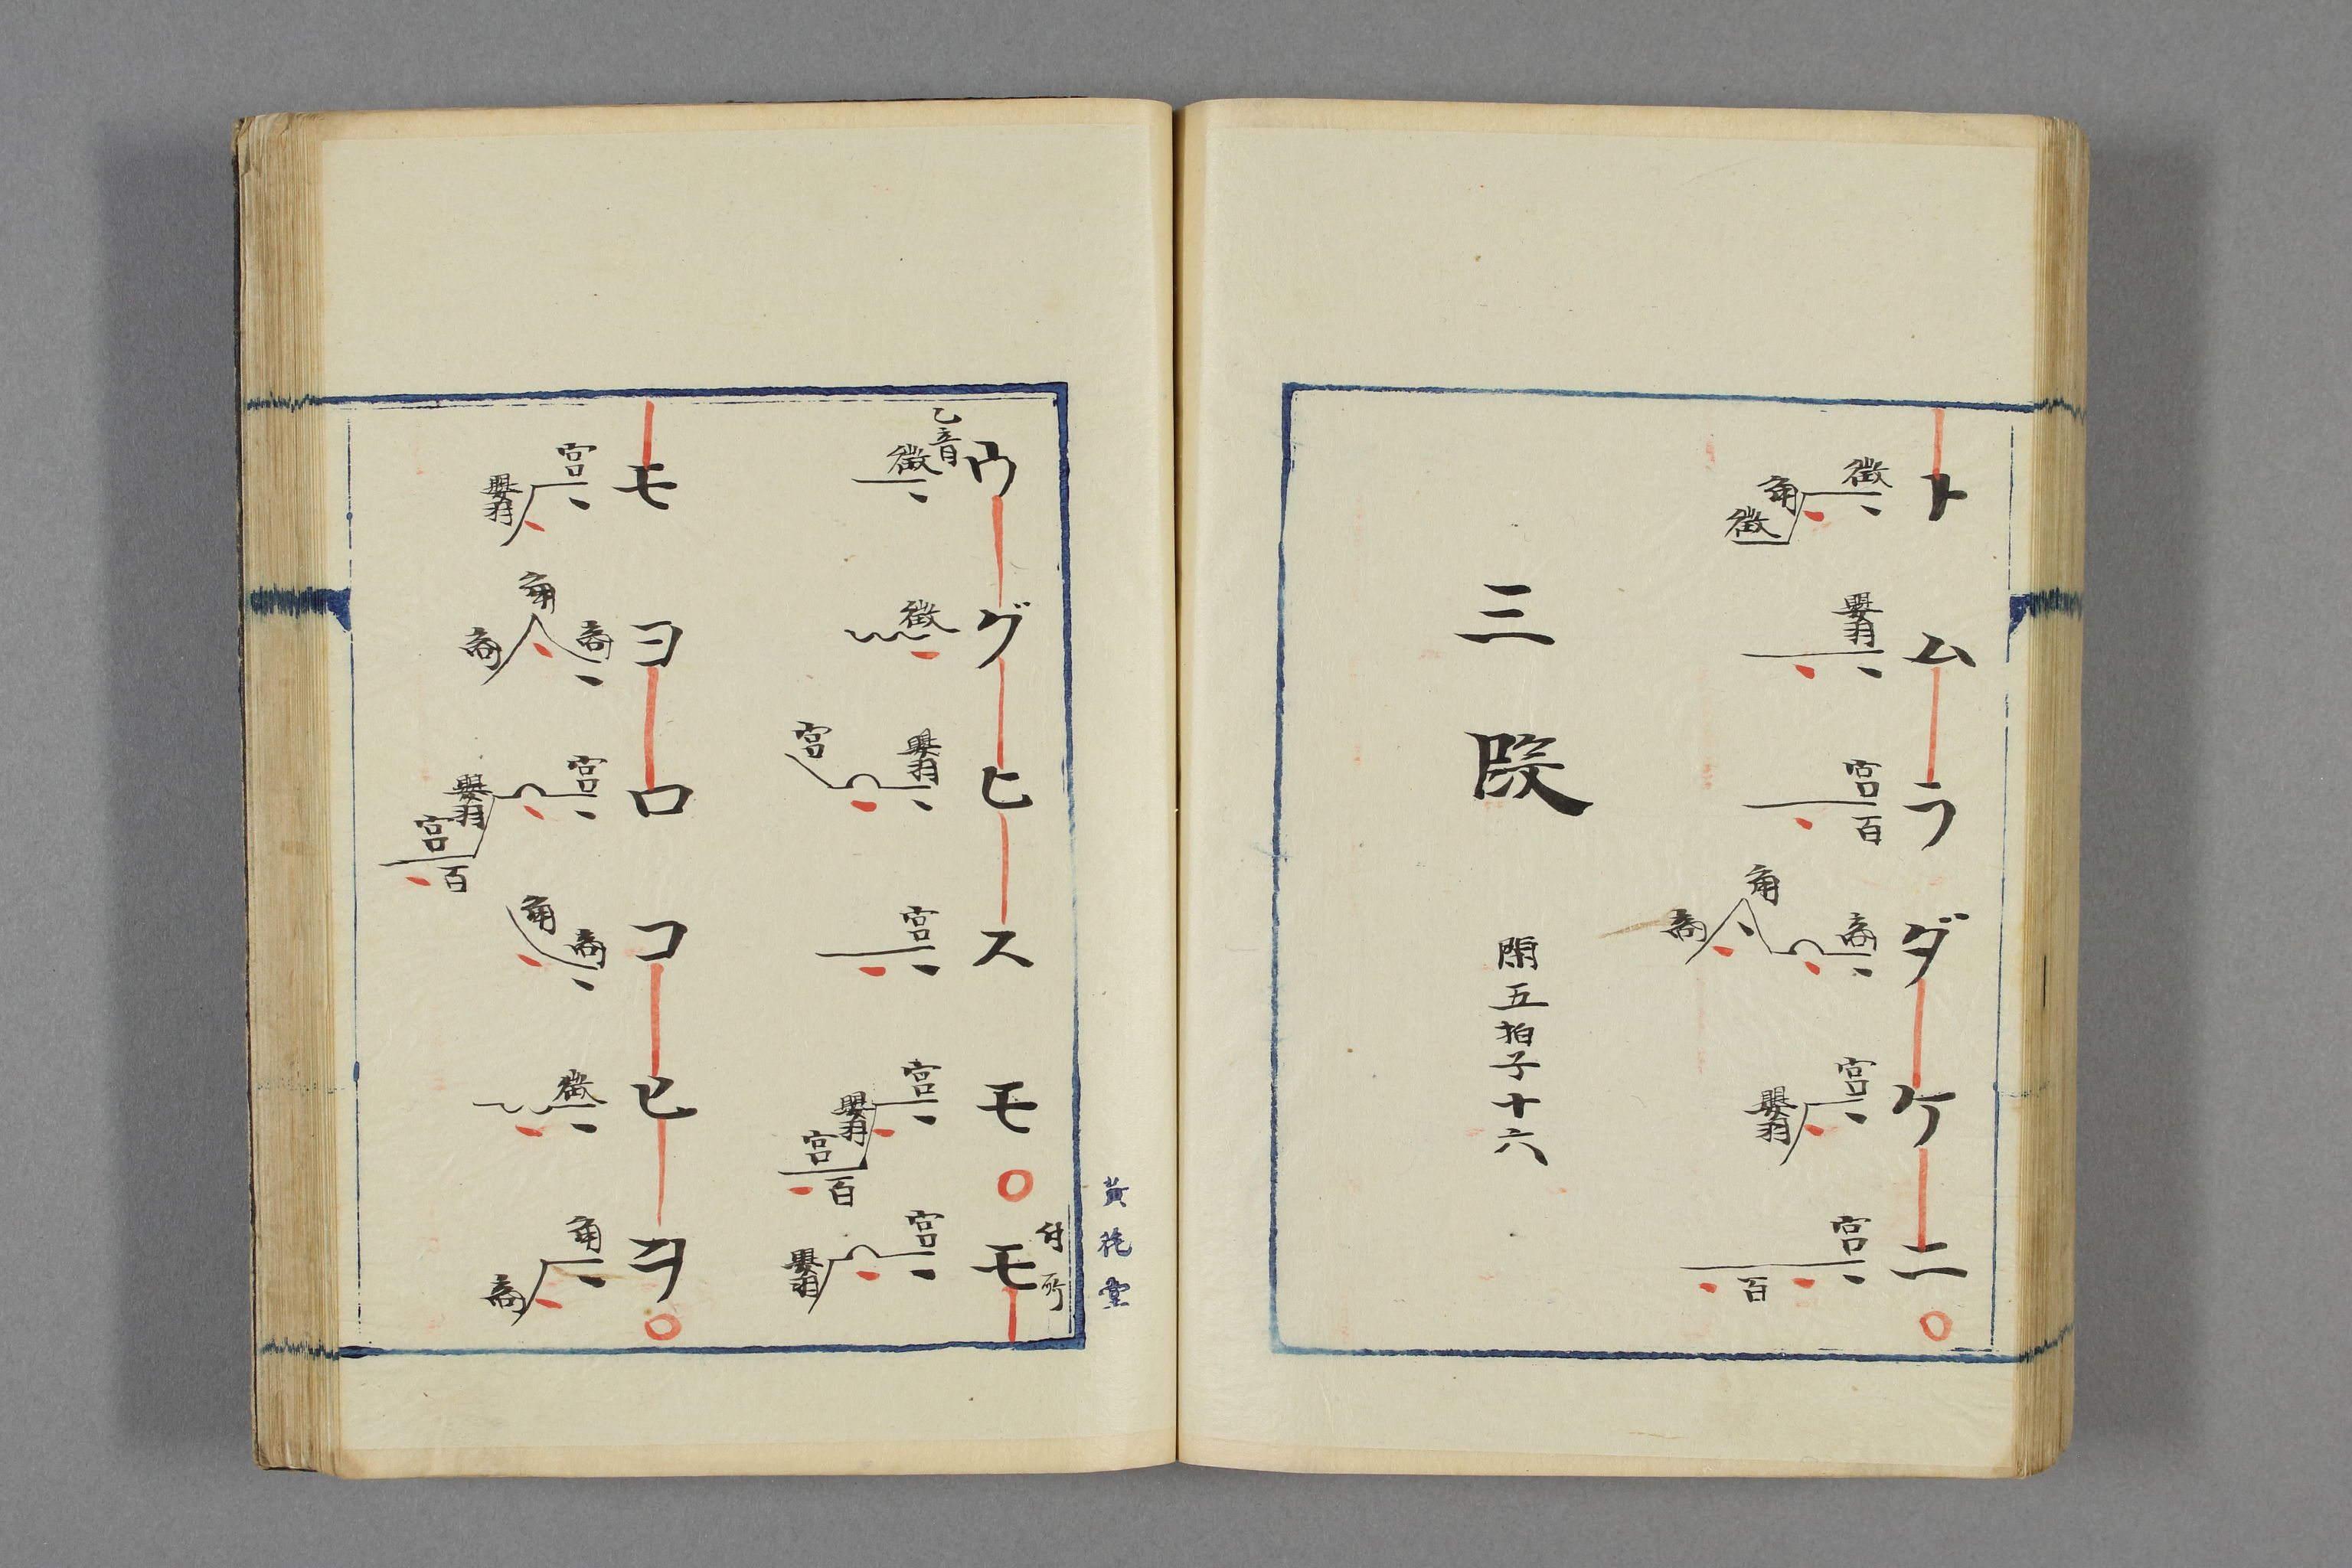 トムラダケニ
徴 角 徴 嬰羽 宮 百 商 角 商 宮 嬰羽 宮 百
三段 閑五拍子十六
黄 堂
付所
ウグヒスモ○モ
乙音
徴 徴 嬰羽 宮 宮 宮 嬰羽 宮 百 宮 嬰羽
モヨロコヒヲ
宮 嬰羽 商 角 商 宮 嬰羽 宮 百 商 角 徴 角 商